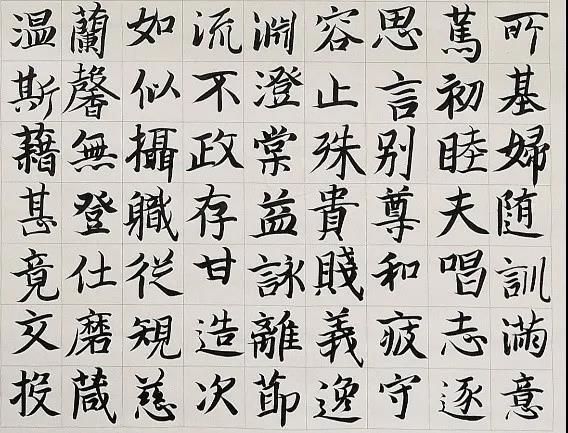 温蘭如流淵容思篤所
斯馨似不澄止言初基
藉無攝政棠殊别睦婦
甚登職存益貴尊夫随
竟仕従甘詠賤和唱訓
交磨規造離義疲志滿
投箴慈次節逸守逐意